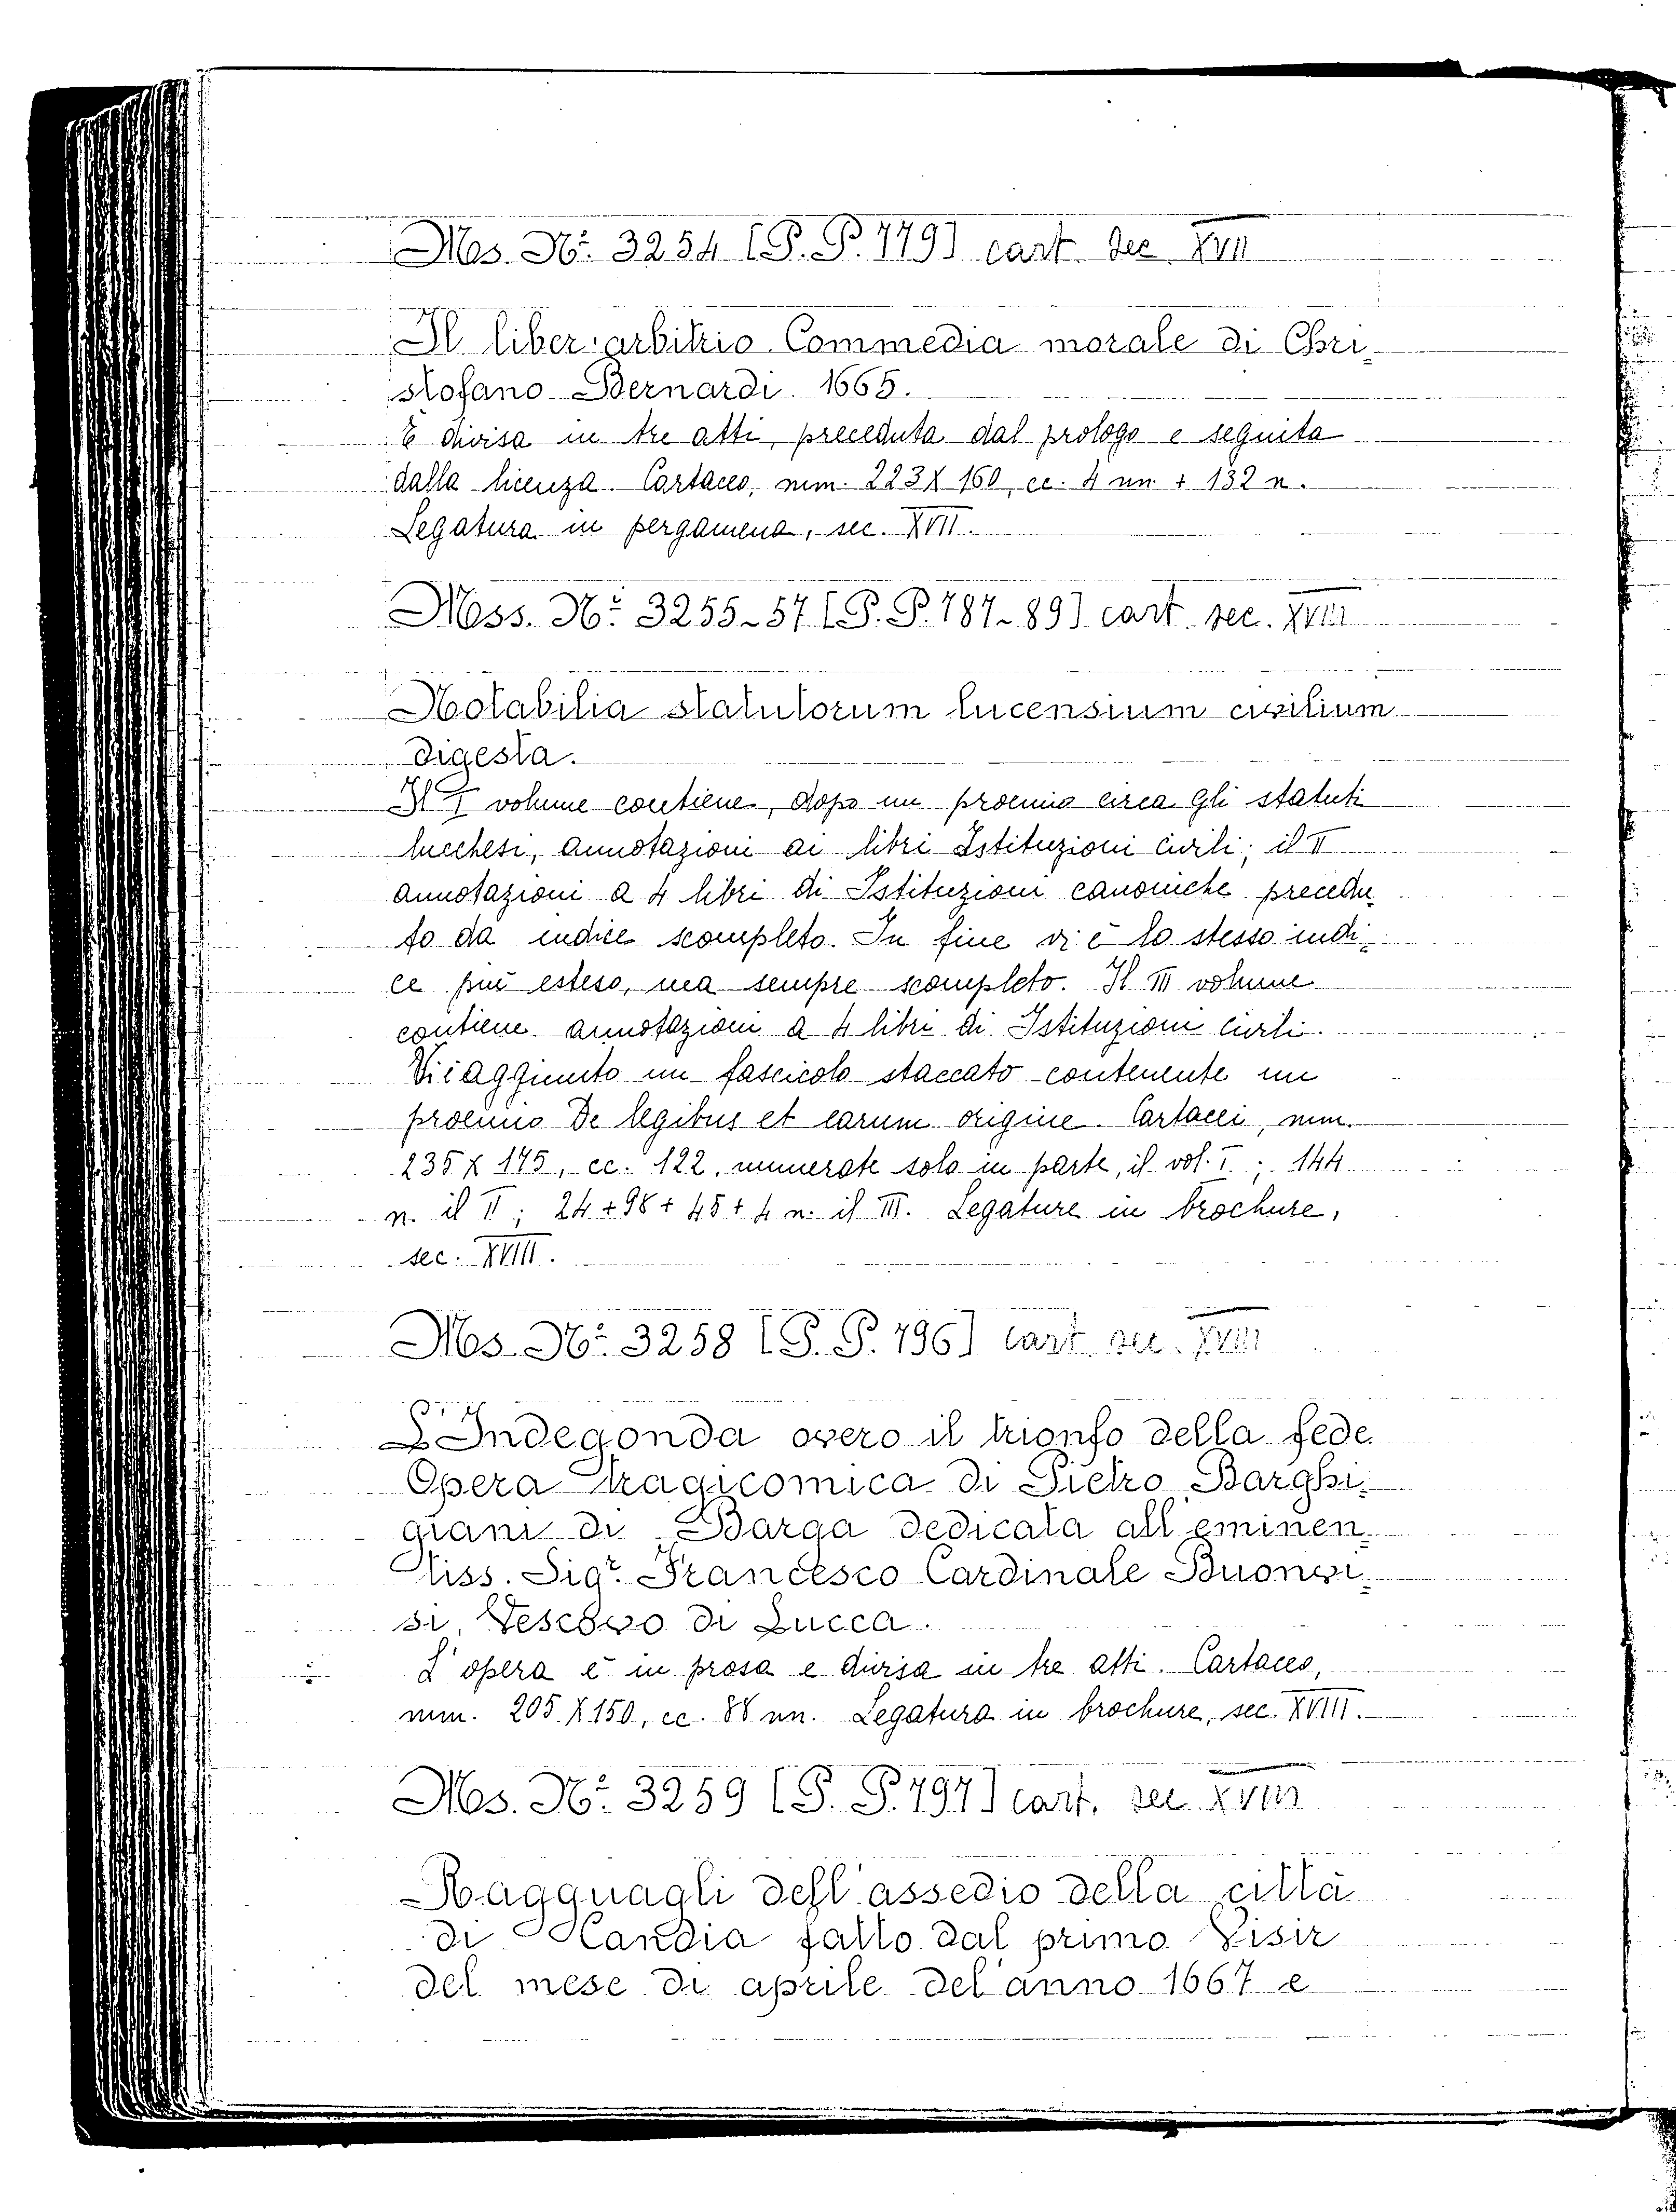 Ms. Nº. 3254 [P. P. 779] cart. sec. XVII
Il liber arbitrio Commedia morale di Chri-
stofano Bernardi 1665.
È divisa in tre atti, preceduta dal prologo e seguita
dalla licenza. Cartaceo, mm. 223 X 160, cc. 4 nn + 132 n.
Legatura in pergamena, sec. XVII.
Mss. Nº. 3255-57 [P. P. 787-89] cart. sec. XVIII
Notabilia statutorum lucensium civilium
digesta.
Il I volume contiene, dopo un proemio circa gli statuti
lucchesi, annotazioni ai libri Istituzioni civili; il II
annotazioni a 4 libri di Istituzioni canoniche precedu-
to da indice scompleto. In fine vi è lo stesso indi-
ce più esteso, ma sempre scompleto. Il III volume
contiene annotazioni a 4 libri di Istituzioni civili.
Vi è aggiunto un fascicolo staccato contenente un
proemio De legibus et earum origine. Cartacei, mm.
235 X 175, cc. 122, numerate solo in parte, il vol. I; 144
n. il II; 24 + 98 + 45 + 4 n. il III. Legature in brochure,
sec. XVIII.
Ms. Nº. 3258 [P. P. 796] cart. sec. XVIII
L'Indegonda overo il trionfo della fede
Opera tragicomica di Pietro Barghi-
giani di Barga dedicata all'eminen-
tiss. Sigr. Francesco Cardinale Buonvi-
si, Vescovo di Lucca.
L'opera è in prosa e divisa in tre atti. Cartaceo,
mm. 205 X 150, cc. 88 nn. Legatura in brochure, sec. XVIII.
Ms. Nº. 3259 [P. P. 797] cart. sec. XVIII
Ragguagli dell'assedio della città
di Candia fatto dal primo Visir
del mese di aprile del'anno 1667 e